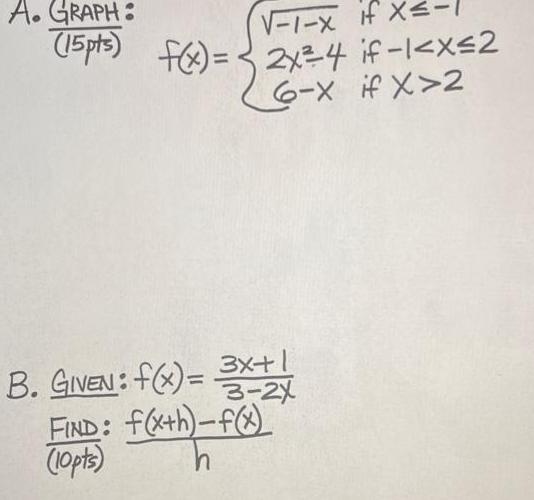 A. GRAPH:
(15pts)
f(x) = { √-1-x if x≤-1
2x²-4 if -1<x≤2
6-x if x>2
B. GIVEN: f(x) = (3x+1)/(3-2x)
FIND: (f(x+h)-f(x))/h
(10pts)